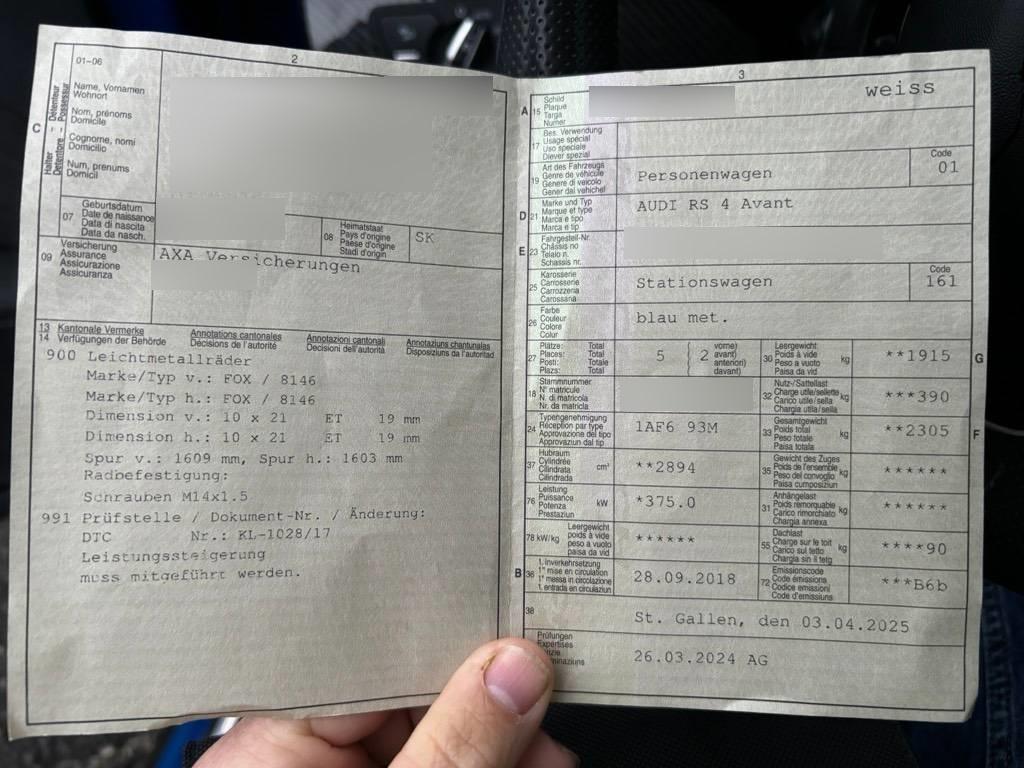 2
01-06
C
Halter - Détenteur
Detentore - Possessur
Name, Vornamen
Wohnort
Nom, prénoms
Domicile
Cognome, nomi
Domicilio
Num, prenums
Domicil
07
Geburtsdatum
Date de naissance
Data di nascita
Data da nasch.
08
Heimatstaat
Pays d'origine
Paese d'origine
Stadi d'origin
SK
09
Versicherung
Assurance
Assicurazione
Assicuranza
AXA Versicherungen
13 Kantonale Vermerke Annotations cantonales Annotazioni cantonali Annotaziuns chantunalas
14 Verfügungen der Behörde Décisions de l'autorité Decisioni dell'autorità Disposiziuns da l'autoritad
900 Leichtmetallräder
Marke/Typ v.: FOX / 8146
Marke/Typ h.: FOX / 8146
Dimension v.: 10 x 21 ET 19 mm
Dimension h.: 10 x 21 ET 19 mm
Spur v.: 1609 mm, Spur h.: 1603 mm
Radbefestigung:
Schrauben M14x1.5
991 Prüfstelle / Dokument-Nr. / Änderung:
DTC Nr.: KL-1028/17
Leistungssteigerung
muss mitgeführt werden.
3
A 15
Schild
Plaque
Targa
Numer
weiss
17
Bes. Verwendung
Usage spécial
Uso speciale
Diever spezial
19
Art des Fahrzeugs
Genre de véhicule
Genere di veicolo
Gener dal vehichel
Personenwagen
Code
01
D 21
Marke und Typ
Marque et type
Marca e tipo
Marca e tip
AUDI RS 4 Avant
E 23
Fahrgestell-Nr.
Châssis no
Telaio n.
Schassis nr.
25
Karosserie
Carrosserie
Carrozzeria
Carossaria
Stationswagen
Code
161
26
Farbe
Couleur
Colore
Color
blau met.
27
Plätze: Total
Places: Total
Posti: Totale
Plazs: Totale
5 2
vorne)
avant)
anteriori)
davant)
30
Leergewicht
Poids à vide
Peso a vuoto
Paisa da vid
kg
**1915
G
18
Stammnummer
N° matricule
N. di matricola
Nr. da matricla
32
Nutz-/Sattellast
Charge utile/sellette
Carico utile/sella
Chargia utila/sella
kg
***390
24
Typengenehmigung
Réception par type
Approvazione del tipo
Approvaziun dal tip
1AF6 93M
33
Gesamtgewicht
Poids total
Peso totale
Paisa totala
kg
**2305
F
37
Hubraum
Cylindrée
Cilindrata
Cilindrada
cm³
**2894
35
Gewicht des Zuges
Poids de l'ensemble
Peso del convoglio
Paisa cumposiziun
kg
******
76
Leistung
Puissance
Potenza
Prestaziun
kW
*375.0
31
Anhängelast
Poids remorquable
Carico rimorchiato
Chargia annexa
kg
******
78 kW/kg
Leergewicht
poids à vide
peso a vuoto
paisa da vid
******
55
Dachlast
Charge sur le toit
Carico sul tetto
Chargia sin il tetg
kg
****90
B 36
1. Inverkehrsetzung
1re mise en circulation
1a messa in circolazione
1. entrada en circulaziun
28.09.2018
72
Emissionscode
Code émissions
Codice emissioni
Code d'emissiuns
***B6b
38
St. Gallen, den 03.04.2025
Prüfungen
Expertises
26.03.2024 AG